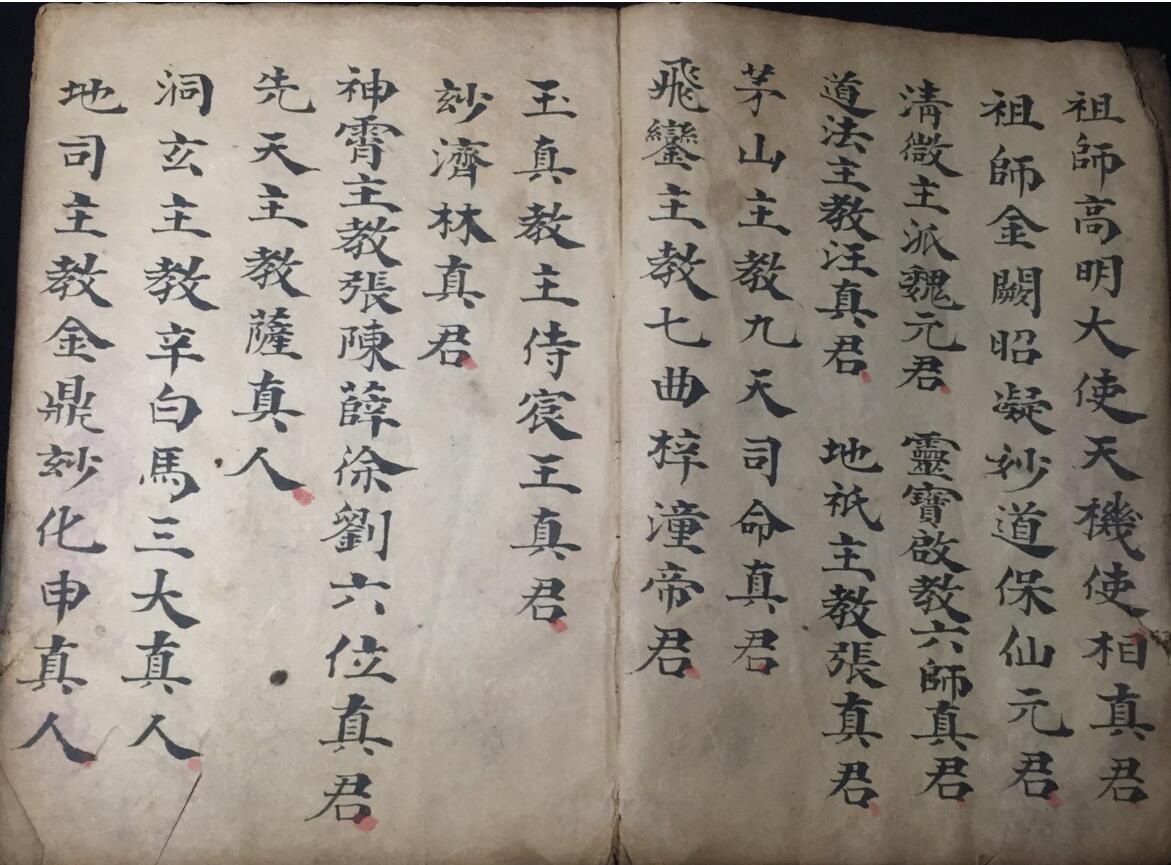 祖師高明大使天機使相真君
祖師金闕昭凝妙道保仙元君
清微主派魏元君 靈寶啟教六師真君
道法主教汪真君 地祇主教張真君
茅山主教九天司命真君
飛鑾主教七曲梓潼帝君
玉真教主侍宸王真君
玅濟林真君
神霄主教張陳薛徐劉六位真君
先天主教薩真人
洞玄主教辛白馬三大真人
地司主教金鼎玅化申真人